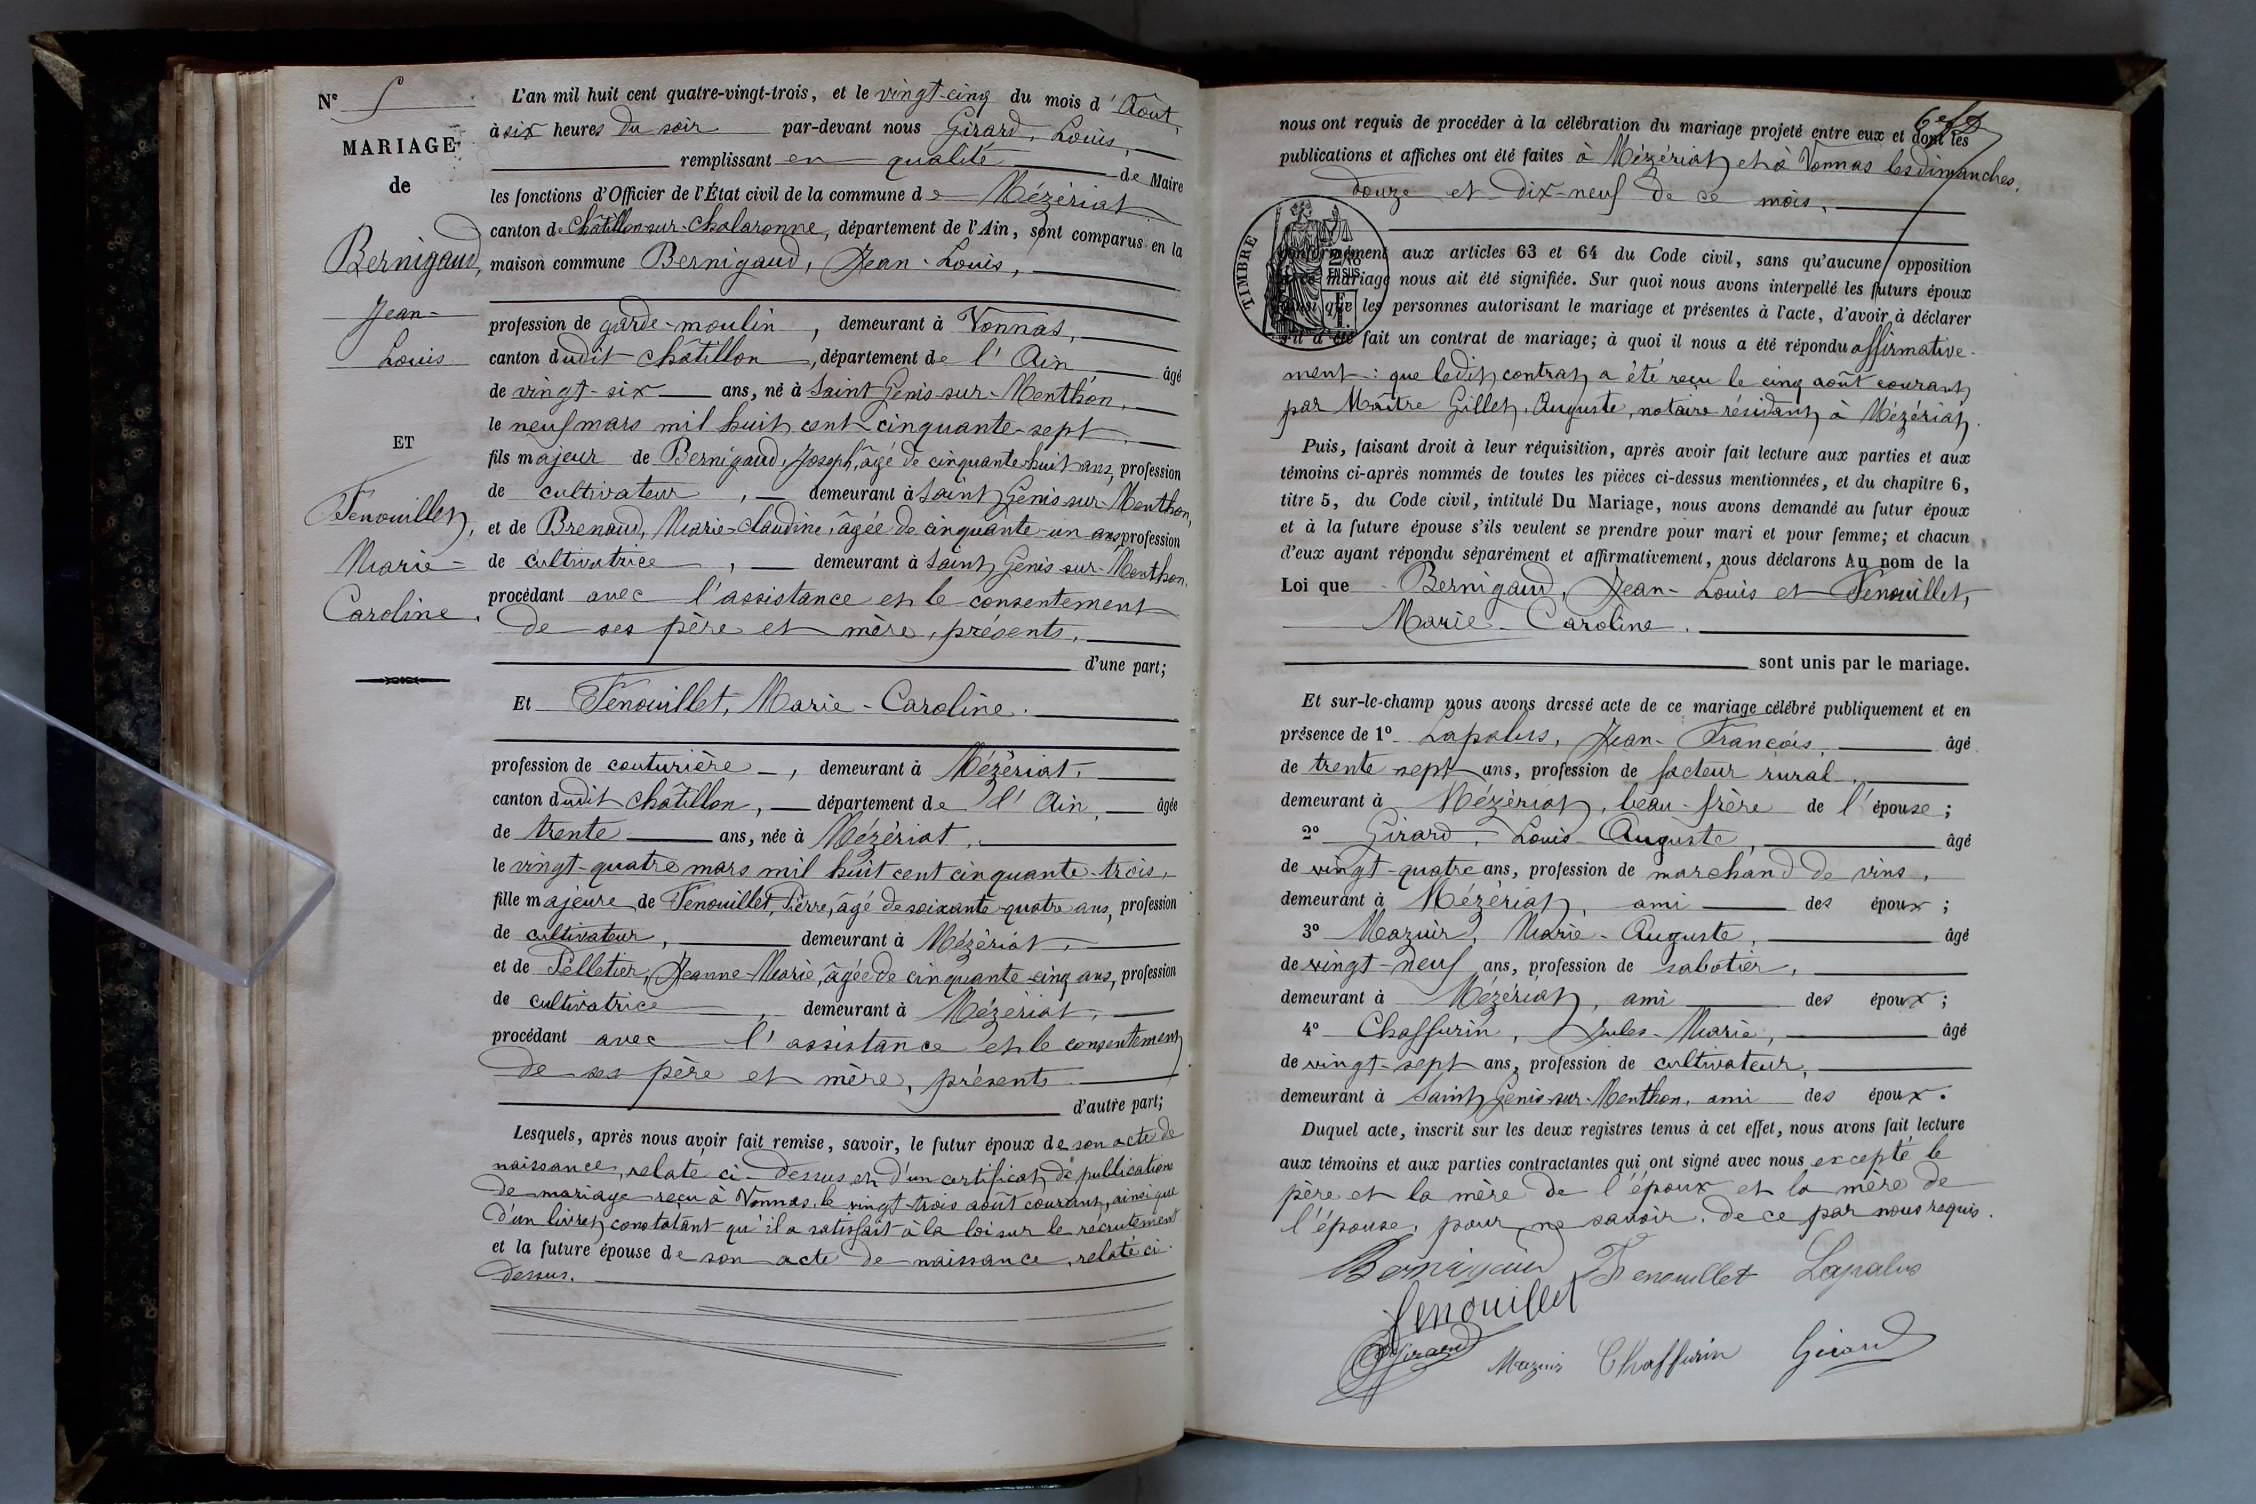 Nº 5
MARIAGE
de
Bernigaud,
Jean-
Louis
ET
Fenouillet,
Marie-
Caroline.
L'an mil huit cent quatre-vingt-trois, et le vingt-cinq du mois d'Août,
à six heures du soir par-devant nous Girard, Louis,
remplissant en qualité de Maire
les fonctions d'Officier de l'État civil de la commune de Mézériat
canton de Châtillon-sur-Chalaronne, département de l'Ain, sont comparus en la
maison commune Bernigaud, Jean-Louis,
profession de garde-moulin, demeurant à Vonnas,
canton dudit Châtillon, département de l'Ain, âgé
de vingt-six ans, né à Saint Genis-sur-Menthon,
le neuf mars mil huit cent cinquante-sept,
fils majeur de Bernigaud, Joseph, âgé de cinquante-huit ans, profession
de cultivateur, demeurant à Saint Genis-sur-Menthon,
et de Brenaud, Marie-Claudine, âgée de cinquante-un ans profession
de cultivatrice, demeurant à Saint Genis-sur-Menthon,
procédant avec l'assistance et le consentement
de ses père et mère, présents,
d'une part;
Et Fenouillet, Marie-Caroline.
profession de couturière, demeurant à Mézériat,
canton dudit Châtillon, département de l'Ain, âgée
de trente ans, née à Mézériat,
le vingt-quatre mars mil huit cent cinquante-trois,
fille majeure de Fenouillet, Pierre, âgé de soixante-quatre ans, profession
de cultivateur, demeurant à Mézériat,
et de Pelletier, Jeanne-Marie, âgée de cinquante-cinq ans, profession
de cultivatrice, demeurant à Mézériat,
procédant avec l'assistance et le consentement
de ses père et mère, présents
d'autre part;
Lesquels, après nous avoir fait remise, savoir, le futur époux de son acte de
naissance, relaté ci-dessus et d'un certificat de publication
de mariage reçu à Vonnas, le vingt-trois août courant, ainsi que
d'un livret constatant qu'il a satisfait à la loi sur le recrutement
et la future épouse de son acte de naissance, relaté ci-
dessus.
nous ont requis de procéder à la célébration du mariage projeté entre eux et dont les
publications et affiches ont été faites à Mézériat et à Vonnas les dimanches
douze et dix-neuf de ce mois,
TIMBRE
conformément aux articles 63 et 64 du Code civil, sans qu'aucune opposition
mariage nous ait été signifiée. Sur quoi nous avons interpellé les futurs époux
ainsi que les personnes autorisant le mariage et présentes à l'acte, d'avoir à déclarer
s'il a été fait un contrat de mariage; à quoi il nous a été répondu affirmative-
ment : que ledit contrat a été reçu le cinq août courant,
par Maître Gillet, Auguste, notaire résidant à Mézériat.
Puis, faisant droit à leur réquisition, après avoir fait lecture aux parties et aux
témoins ci-après nommés de toutes les pièces ci-dessus mentionnées, et du chapitre 6,
titre 5, du Code civil, intitulé Du Mariage, nous avons demandé au futur époux
et à la future épouse s'ils veulent se prendre pour mari et pour femme; et chacun
d'eux ayant répondu séparément et affirmativement, nous déclarons Au nom de la
Loi que Bernigaud, Jean-Louis et Fenouillet,
Marie-Caroline.
sont unis par le mariage.
Et sur-le-champ nous avons dressé acte de ce mariage célébré publiquement et en
présence de 1º Lapalus, Jean-François, âgé
de trente sept ans, profession de facteur rural,
demeurant à Mézériat, beau-frère de l'épouse;
2º Girard, Louis-Auguste, âgé
de vingt-quatre ans, profession de marchand de vins,
demeurant à Mézériat, ami des époux;
3º Mazuir, Marie-Auguste, âgé
de vingt-neuf ans, profession de sabotier,
demeurant à Mézériat, ami des époux;
4º Chaffurin, Jules-Marie, âgé
de vingt-sept ans, profession de cultivateur,
demeurant à Saint Genis-sur-Menthon, ami des époux.
Duquel acte, inscrit sur les deux registres tenus à cet effet, nous avons fait lecture
aux témoins et aux parties contractantes qui ont signé avec nous excepté le
père et la mère de l'époux et la mère de
l'épouse, pour ne savoir, de ce par nous requis.
Bernigaud Fenouillet Lapalus
fenouillet
Girard Mazuir Chaffurin Girard